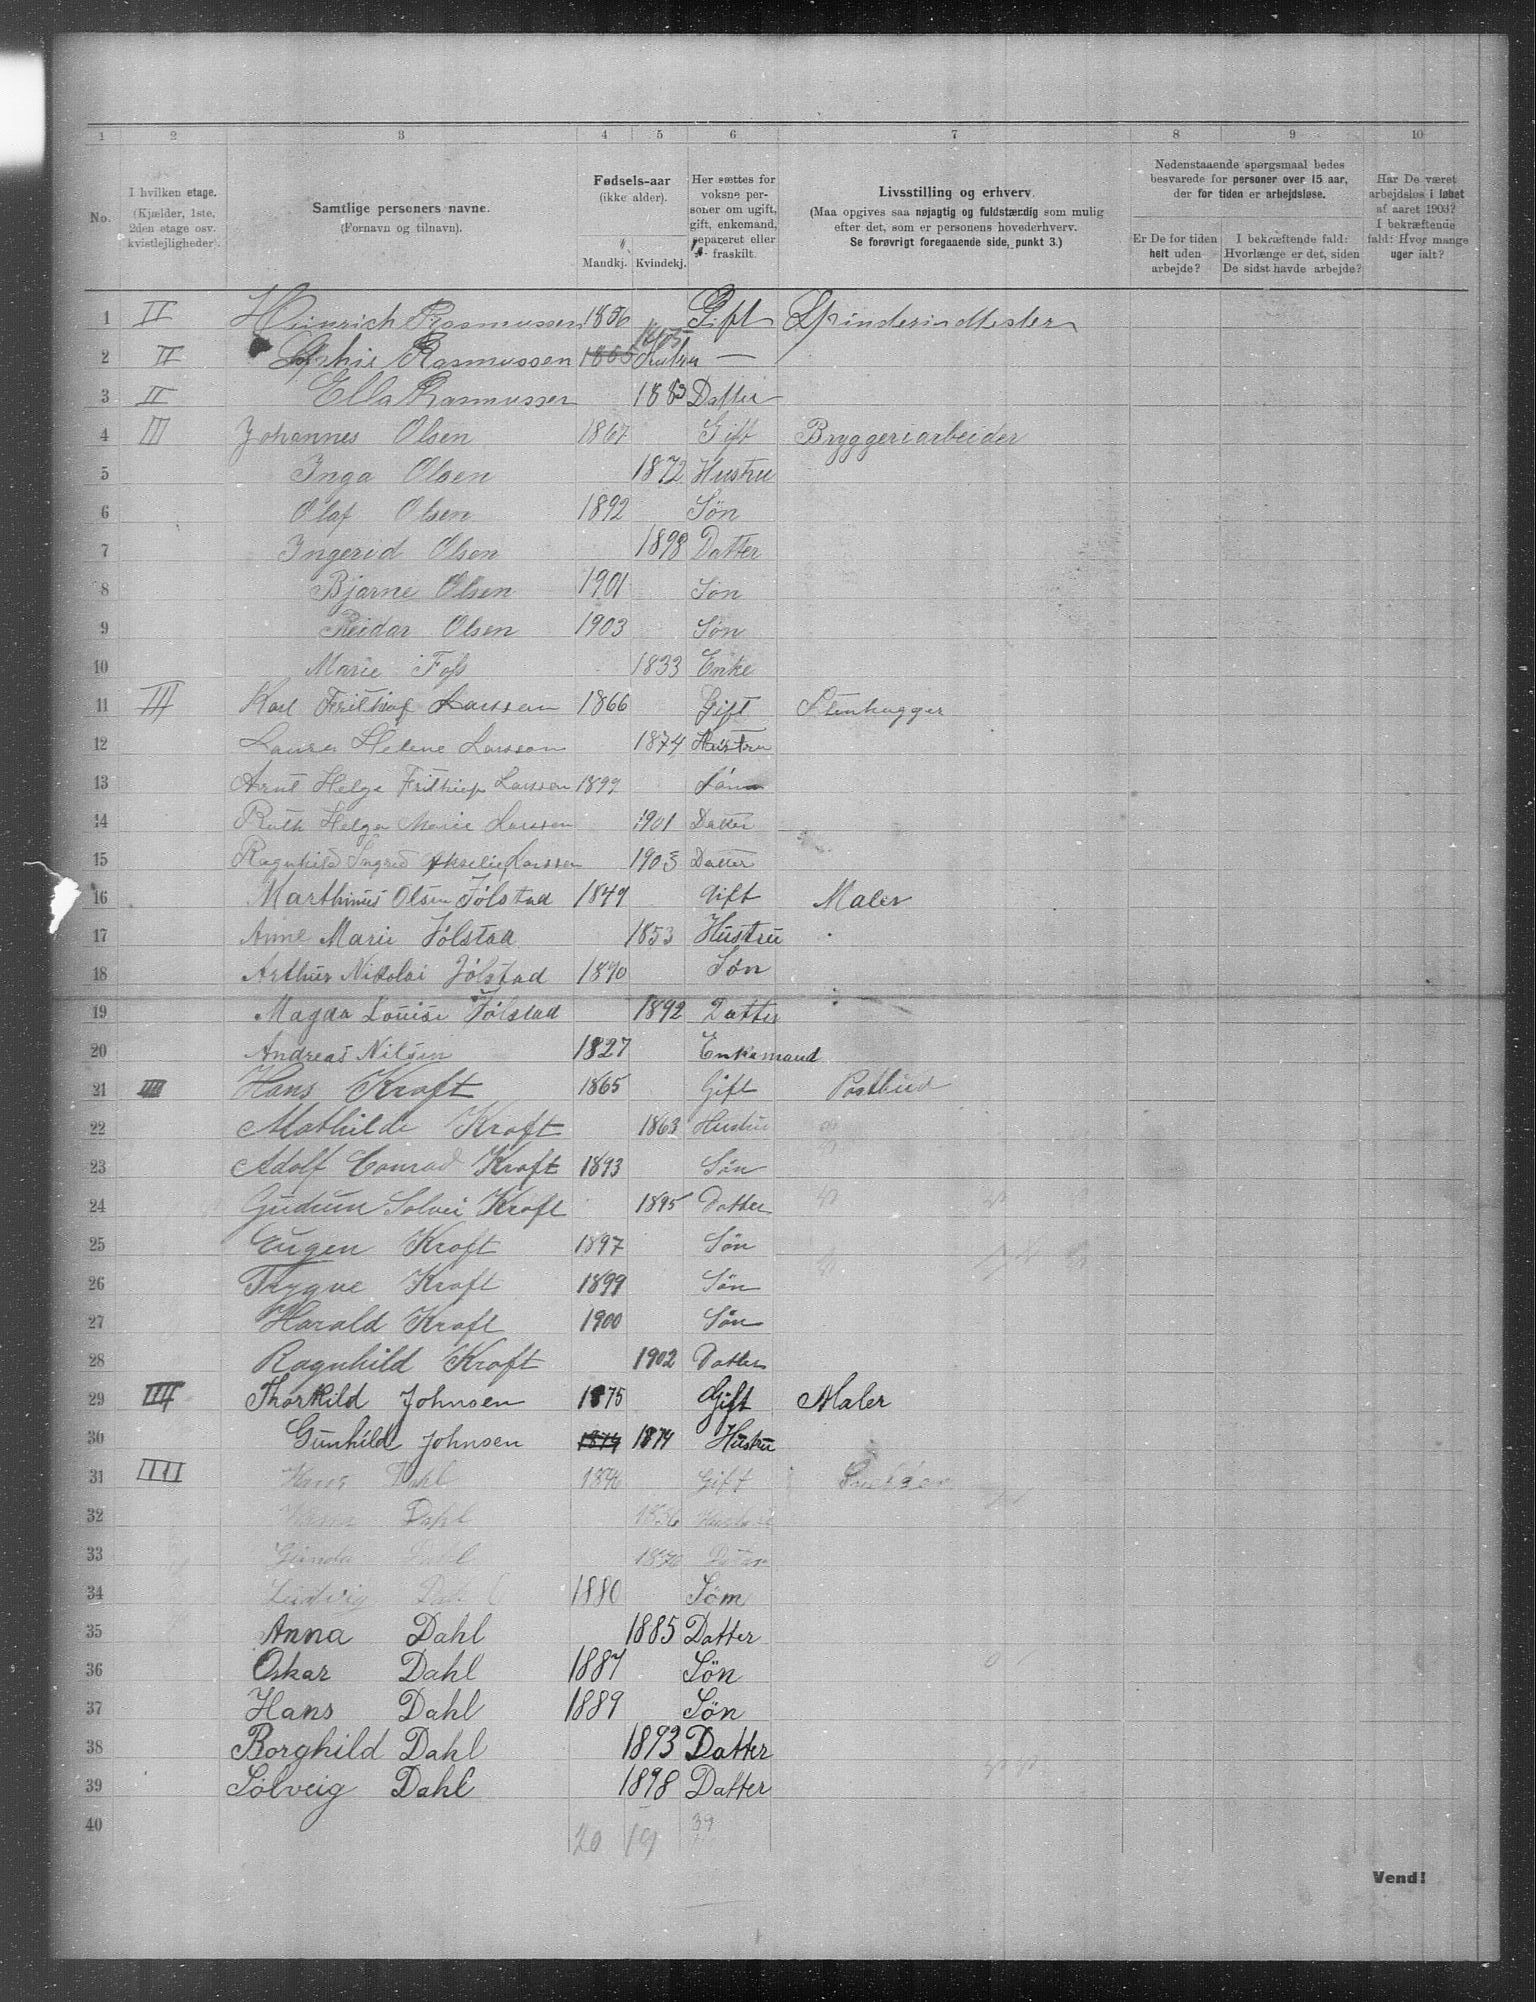 1 2 3 4 5 6 7 8 9 10
No.
I hvilken etage.
(Kjælder, 1ste, 2den etage osv. kvistlejligheder).
Samtlige personers navne.
(Fornavn og tilnavn).
Fødsels-aar
(ikke alder).
Mandkj. Kvindekj.
Her sættes for voksne personer om ugift, gift, enkemand, separeret eller fraskilt.
Livsstilling og erhverv.
(Maa opgives saa nøjagtig og fuldstærdig som mulig efter det, som er personens hovederhverv.
Se forøvrigt foregaaende side, punkt 3.)
Nedenstaaende spørgsmaal bedes besvarede for personer over 15 aar, der for tiden er arbejdsløse.
Er De for tiden helt uden arbejde?
I bekræftende fald: Hvorlænge er det, siden De sidst havde arbejde?
Har De været arbejdsløs i løbet af aaret 1903? I bekræftende fald: Hvor mange uger ialt?
1 II Heinrich Rasmussen 1856 Gift
2 II Sophie Rasmussen 1865 —
3 II Ella Rasmussen 1883 Datter
4 III Johannes Olsen 1867 Gift Bryggeriarbeider
5 Inga Olsen 1872 Hustru
6 Olaf Olsen 1892 Søn
7 Ingerid Olsen 1898 Datter
8 Bjarne Olsen 1901 Søn
9 Reidar Olsen 1903 Søn
10 Marie Foss 1833 Enke
11 III Karl Frithiof Larssen 1866 Gift Stenhugger
12 Laura Helene Larssen 1874 Hustru
13 Arnt Helge Frithiof Larssen 1899 Søn
14 Ruth Helga Marie Larssen 1901 Datter
15 Ragnhild Ingrid Akselie Larssen 1903 Datter
16 Marthinus Olsen Jølstad 1849 Gift Maler
17 Anne Marie Jølstad 1853 Hustru
18 Arthur Nikolai Jølstad 1890 Søn
19 Magda Louise Jølstad 1892 Datter
20 Andreas Nilsen 1827 Enkemand
21 IIII Hans Kraft 1865 Gift Postbud
22 Mathilde Kraft 1863 Hustru
23 Adolf Conrad Kraft 1893 Søn
24 Gudrun Solvei Kraft 1895 Datter
25 Eugen Kraft 1897 Søn
26 Trygve Kraft 1899 Søn
27 Harald Kraft 1900 Søn
28 Ragnhild Kraft 1902 Datter
29 IIII Thorkild Johnsen 1875 Gift Maler
30 Gunhild Johnsen 1874 1874 Hustru
31 IIII Dahl Gift
32 Dahl 1856
33 Dahl
34 Ludvig Dahl 1880 Søm
35 Anna Dahl 1885 Datter
36 Oskar Dahl 1887 Søn
37 Hans Dahl 1889 Søn
38 Borghild Dahl 1893 Datter
39 Solveig Dahl 1898 Datter
40 20 19 39
Vend!